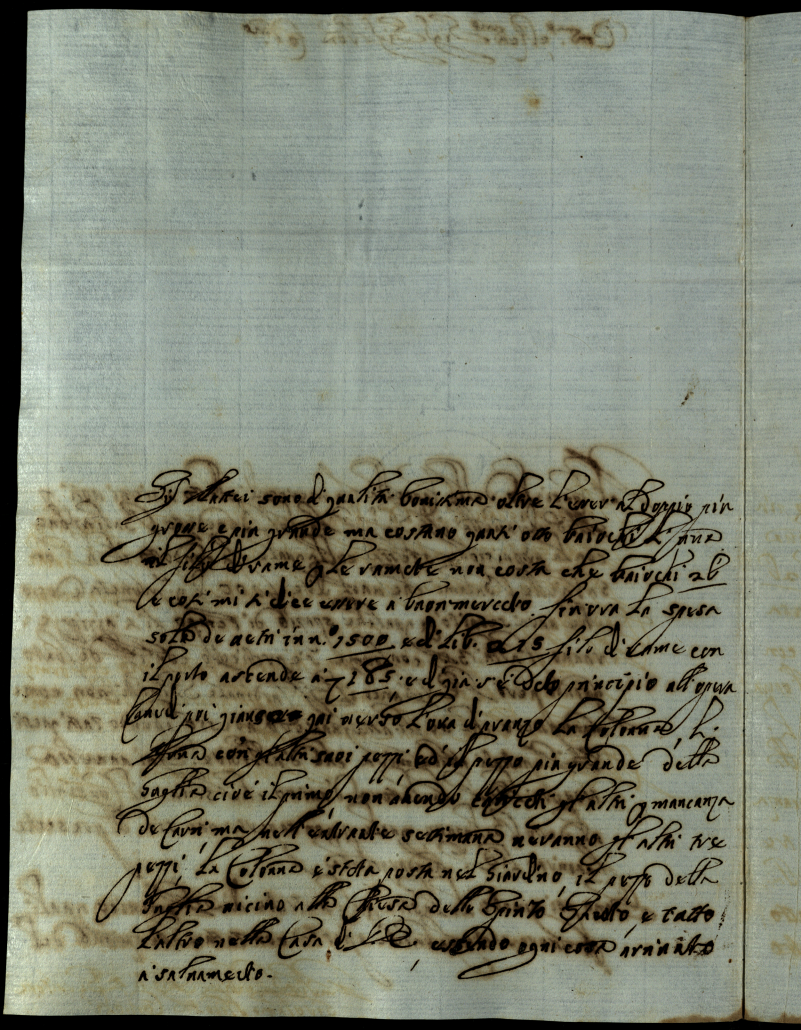 sono di qualità bonissima oltre l'esser al doppio più
grosse e più grande ma costano quasi otto baiochi l'una
il filo di rame e le ramette non costa che baiochi 26
e così mi si dice essere a buon mercato. Sin ora la spesa
sola de vetri in n.º 1500 e di lib. 215 filo di rame con
il porto ascende a 185 e di già s'è dato principio all'opera
poi giunsero qui verso l'ora di pranzo la Colonna,
con gl'altri suoi pezzi ed il pezzo più grande della
Guglia cioè il primo, non avendo gl'altri mancanza
de Carri ma nell'entrante settimana veranno gl'altri tre
pezzi, la Colonna è stata posta nel Giardino, il pezzo della
Guglia vicino alla Chiesa dello Spirito Santo, e tutto
l'altro nella Casa di essendo ogni cosa arrivato
a salvamento.